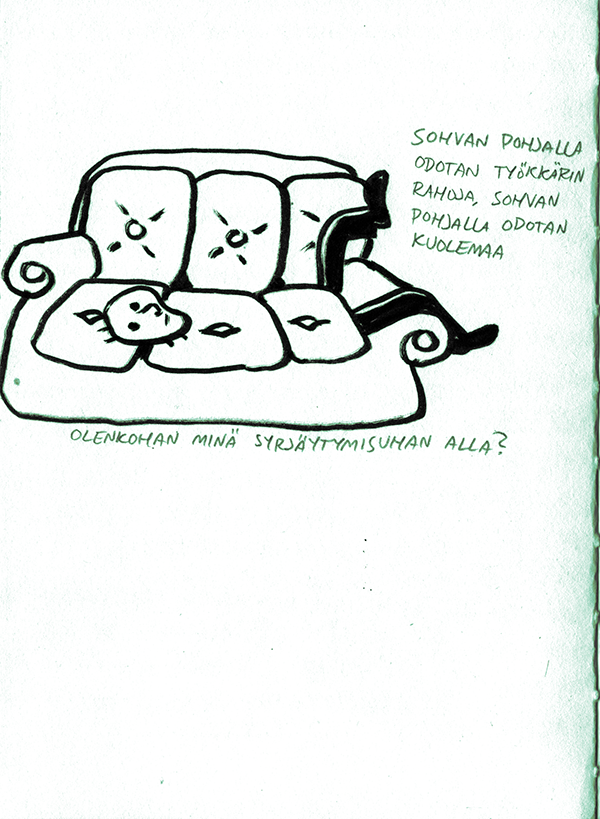 SOHVAN POHJALLA
ODOTAN TYÖKKÄRIN
RAHOJA, SOHVAN
POHJALLA ODOTAN
KUOLEMAA
OLENKOHAN MINÄ SYRJÄYTYMISUHAN ALLA?